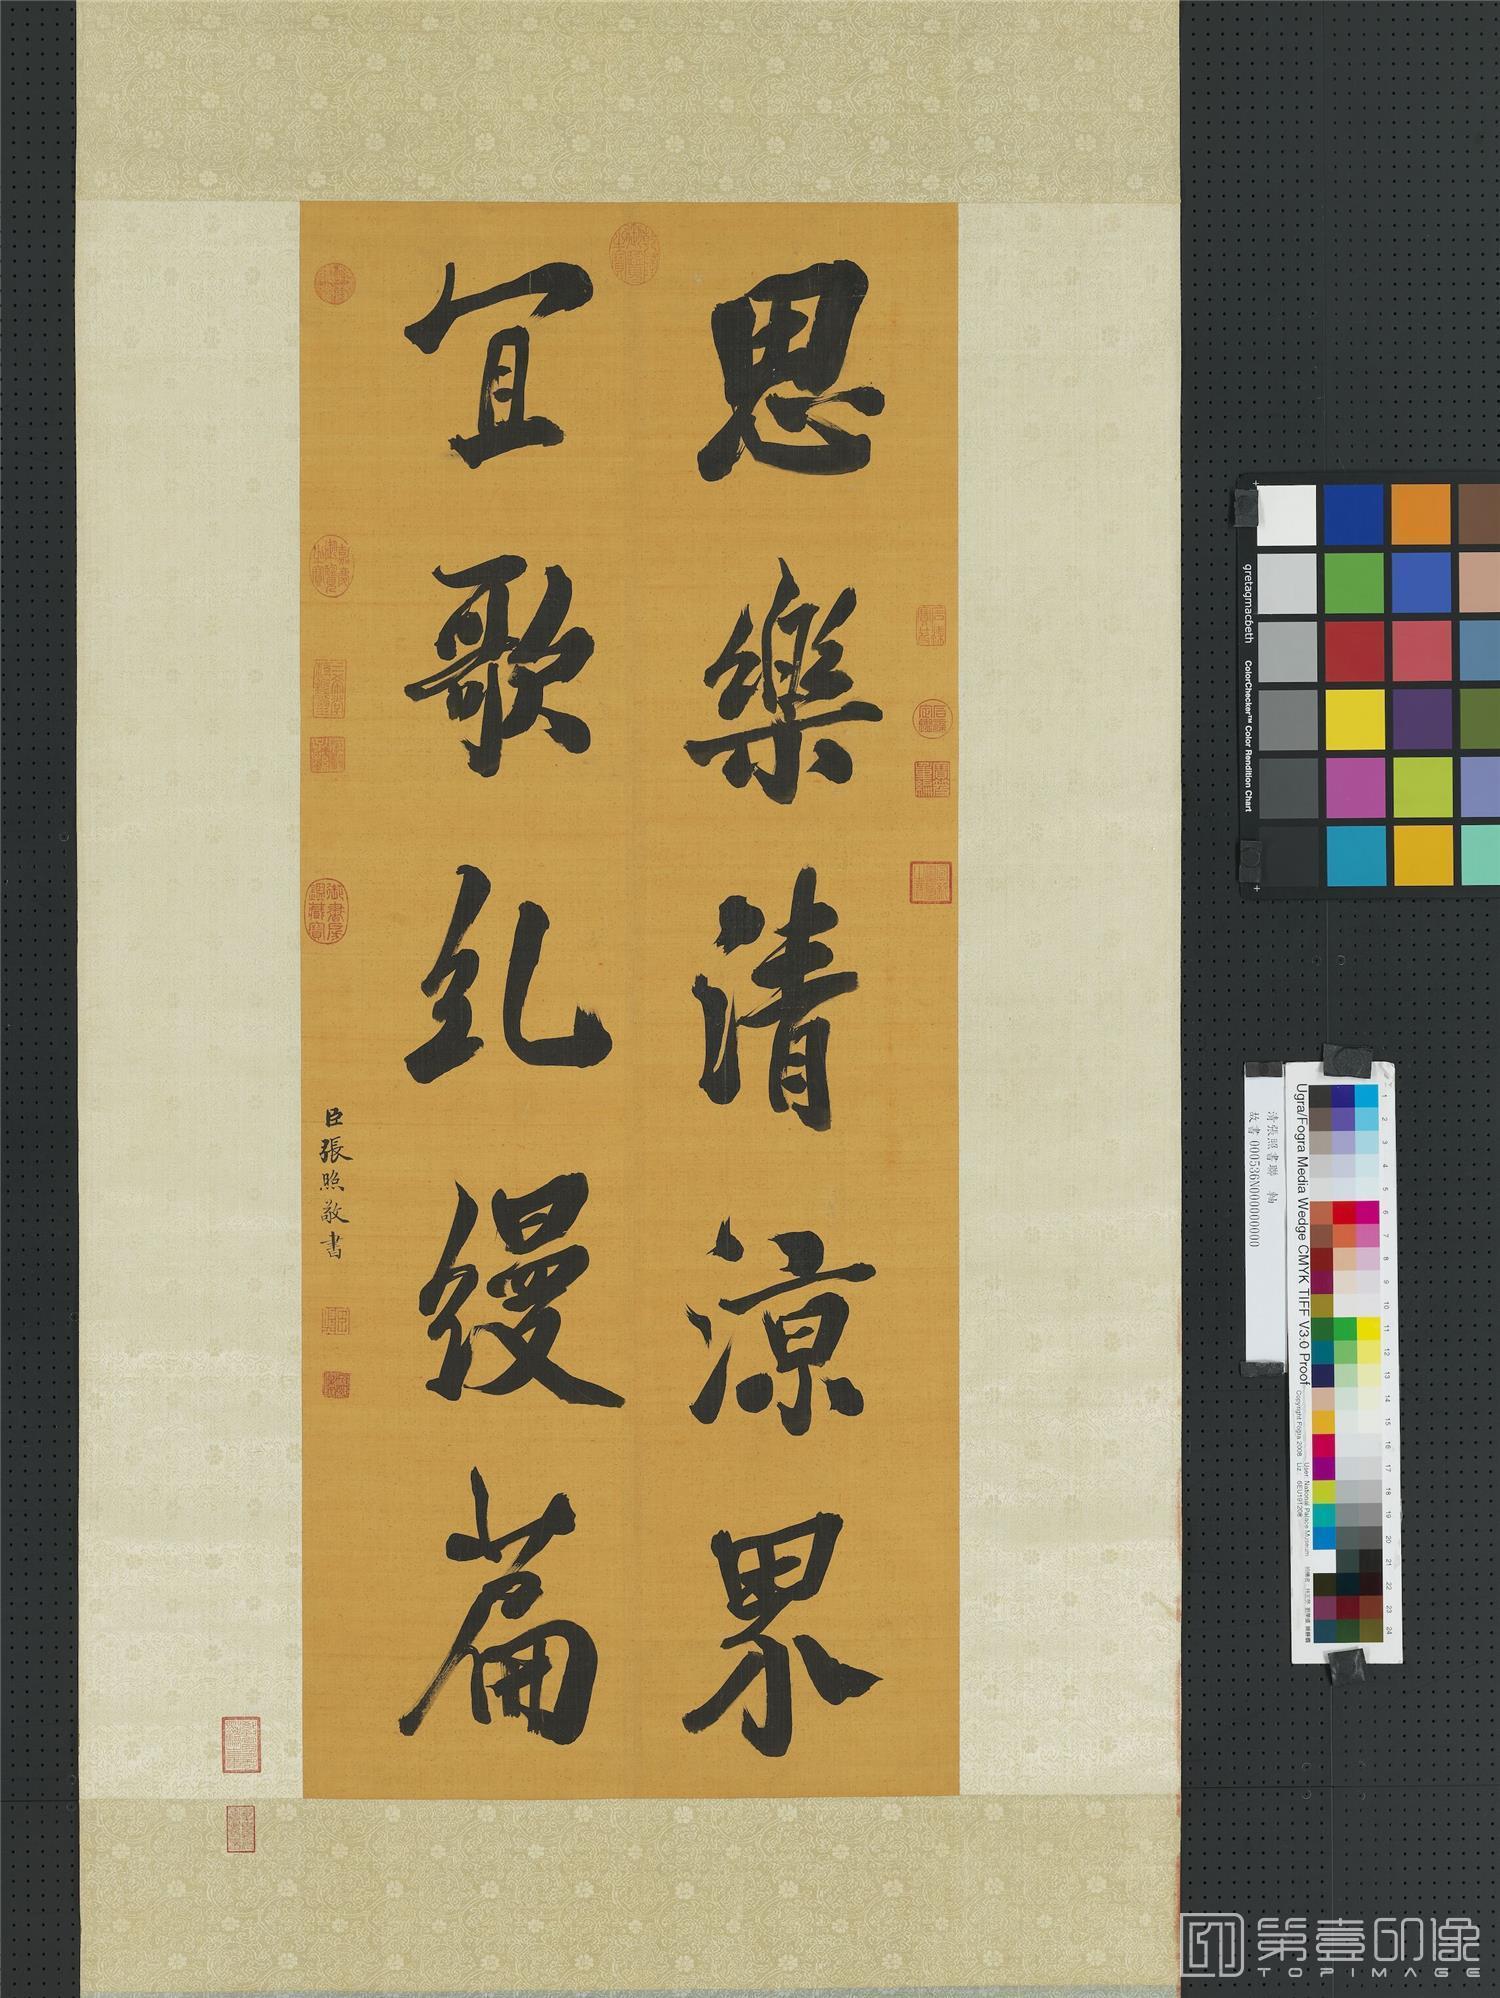 思樂清涼界
宜歌糺縵篇
臣張照敬書
嘉慶御覽之寶
御書房鑑藏寶
清張照書聯 軸
故書 000536N000000000
gretagmacbeth
ColorChecker™ Color Rendition Chart
Ugra/Fogra Media Wedge CMYK TIFF V3.0 Proof
Copyright Fogra 2008
User: National Palace Museum
1
2
3
4
5
6
7
8
9
10
11
12
13
14
15
16
17
18
19
20
21
22
23
24
第壹印像
TOPIMAGE